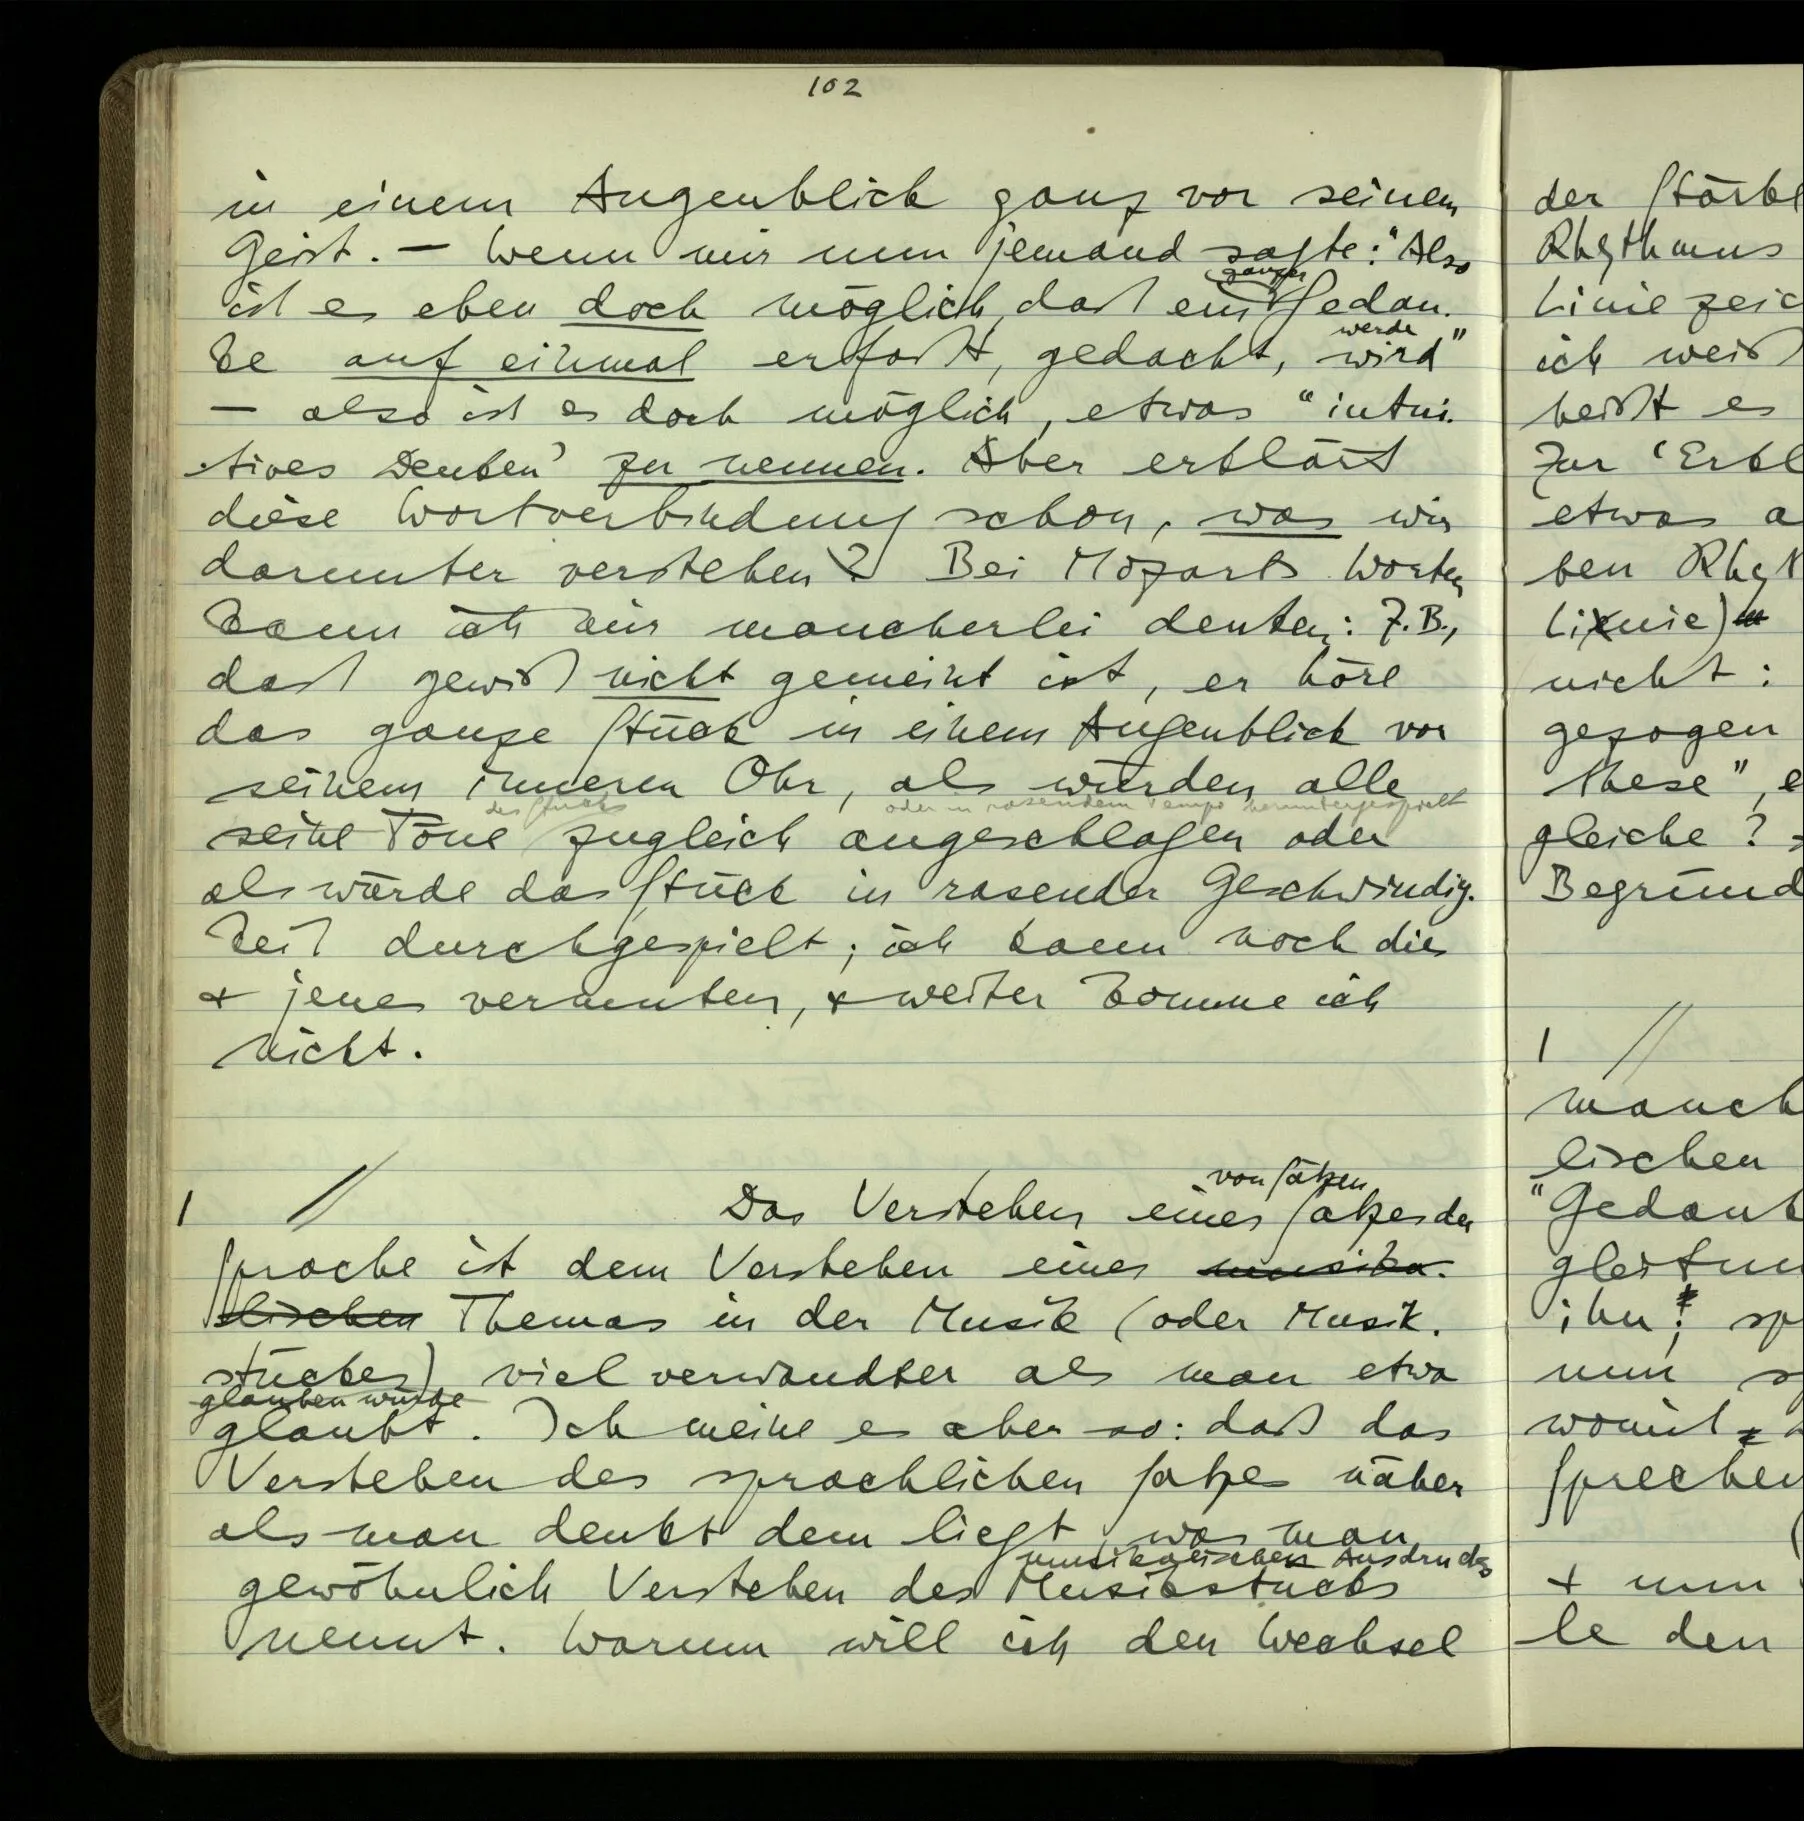 102
in einem Augenblick ganz vor seinem
Geist. — Wenn mir nun jemand sagte: "Also
ganzer
ist es eben doch möglich, daß ein Gedan-
werde
ke auf einmal erfaßt, gedacht, wird"
— also ist es doch möglich, etwas "intui-
tives Denken' zu nennen. Aber erklärt
diese Wortverbindung schon, was wir
darunter verstehen? Bei Mozarts Worten
kann ich mir mancherlei denken: Z.B.,
daß gewiß nicht gemeint ist, er höre
das ganze Stück in einem Augenblick vor
seinem inneren Ohr, als würden alle
des Stücks oder in rasendem Tempo heruntergespielt
seine Töne zugleich angeschlagen oder
als würde das Stück in rasender Geschwindig-
keit durchgespielt; ich kann noch dies
& jenes vermuten, & weiter komme ich
nicht.
von Sätzen
1 // Das Verstehen eines Satzes der
Sprache ist dem Verstehen eines musika-
lischen Themas in der Musik (oder Musik-
stückes) viel verwandter als man etwa
glauben würde
glaubt. Ich meine es aber so: daß das
Verstehen des sprachlichen Satzes näher
als man denkt dem liegt, was man
musikalischen Ausdrucks
gewöhnlich Verstehen des Musikstücks
nennt. Warum will ich den Wechsel
der Stärke
Rhythmus
Linie zeic
ich weiß
heißt es
Zur 'Erkl
etwas a
ben Rhyt
Linie)
nicht:
gezogen
these", e
gleiche?
Begründ
1 //
manch
lischen
"Gedank
gleitun
ihn; sp
nun s
womit
Sprechen
& nun
le den